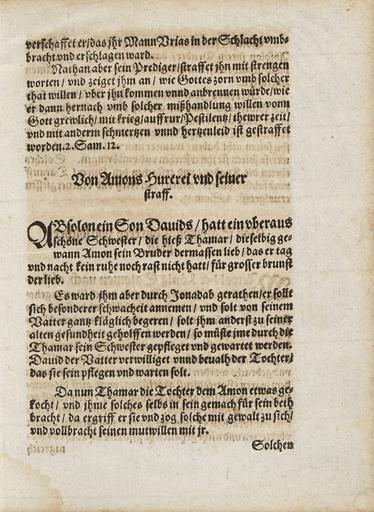 verschaffet er/das jhr Mann Vrias in der Schlacht vmb-
bracht vnd erschlagen ward.
Nathan aber sein Prediger/straffet jhn mit strengen
worten / vnd zeiget jhm an / wie Gottes zorn vmb solcher
that willen / vber jhn kommen vnnd anbrennen würde/wie
er dann hernach vmb solcher mißhandlung willen vonn
Gott grewlich/ mit krieg/auffrur/Pestilentz/ thewrer zeit/
vnd mit anderm schmertzen vnnd hertzenleid ist gestrafft
worden. 2. Sam. 12.
Von Amons Hurerei vnd seiner
straff.
ABsolon ein Son Dauids / hatt ein vberaus
schöne Schwester / die hieß Thamar / dieselbig ge-
wann Amon sein Bruder dermassen lieb / das er tag
vnd nacht kein ruhe noch rast nicht hatt / für grosser brunst
der lieb.
Es ward jhm aber durch Jonadab gerathen/er sollt
sich besonderer schwacheit annemen / vnd solt von seinem
Vatter gantz kläglich begeren / solt jhm anderst zu seiner
alten gesundheit geholffen werden / so müste jme durch die
Thamar sein Schwester gepfleget vnd gewartet werden.
Dauid der Vatter verwilliget vnnd beualh der Tochter/
das sie sein pflegen vnd warten solt.
Da nun Thamar die Tochter dem Amon etwas ge-
kocht / vnd jhme solches selbs in sein gemach für sein beth
bracht / da ergriff er sie vnd zog solche mit gewalt zu sich/
vnd vollbracht seinen mutwillen mit jr.
Solchen